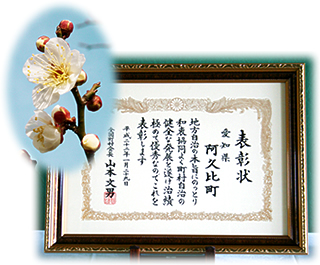 表彰状
愛知県
阿久比町
地方自治の本旨にのっとり
和衷協同よく町村自治の
健全な発展を遂げ治績
極めて優秀なのでこれを
表彰します
平成二十二年一月二十九日
全国町村会長 山本文男